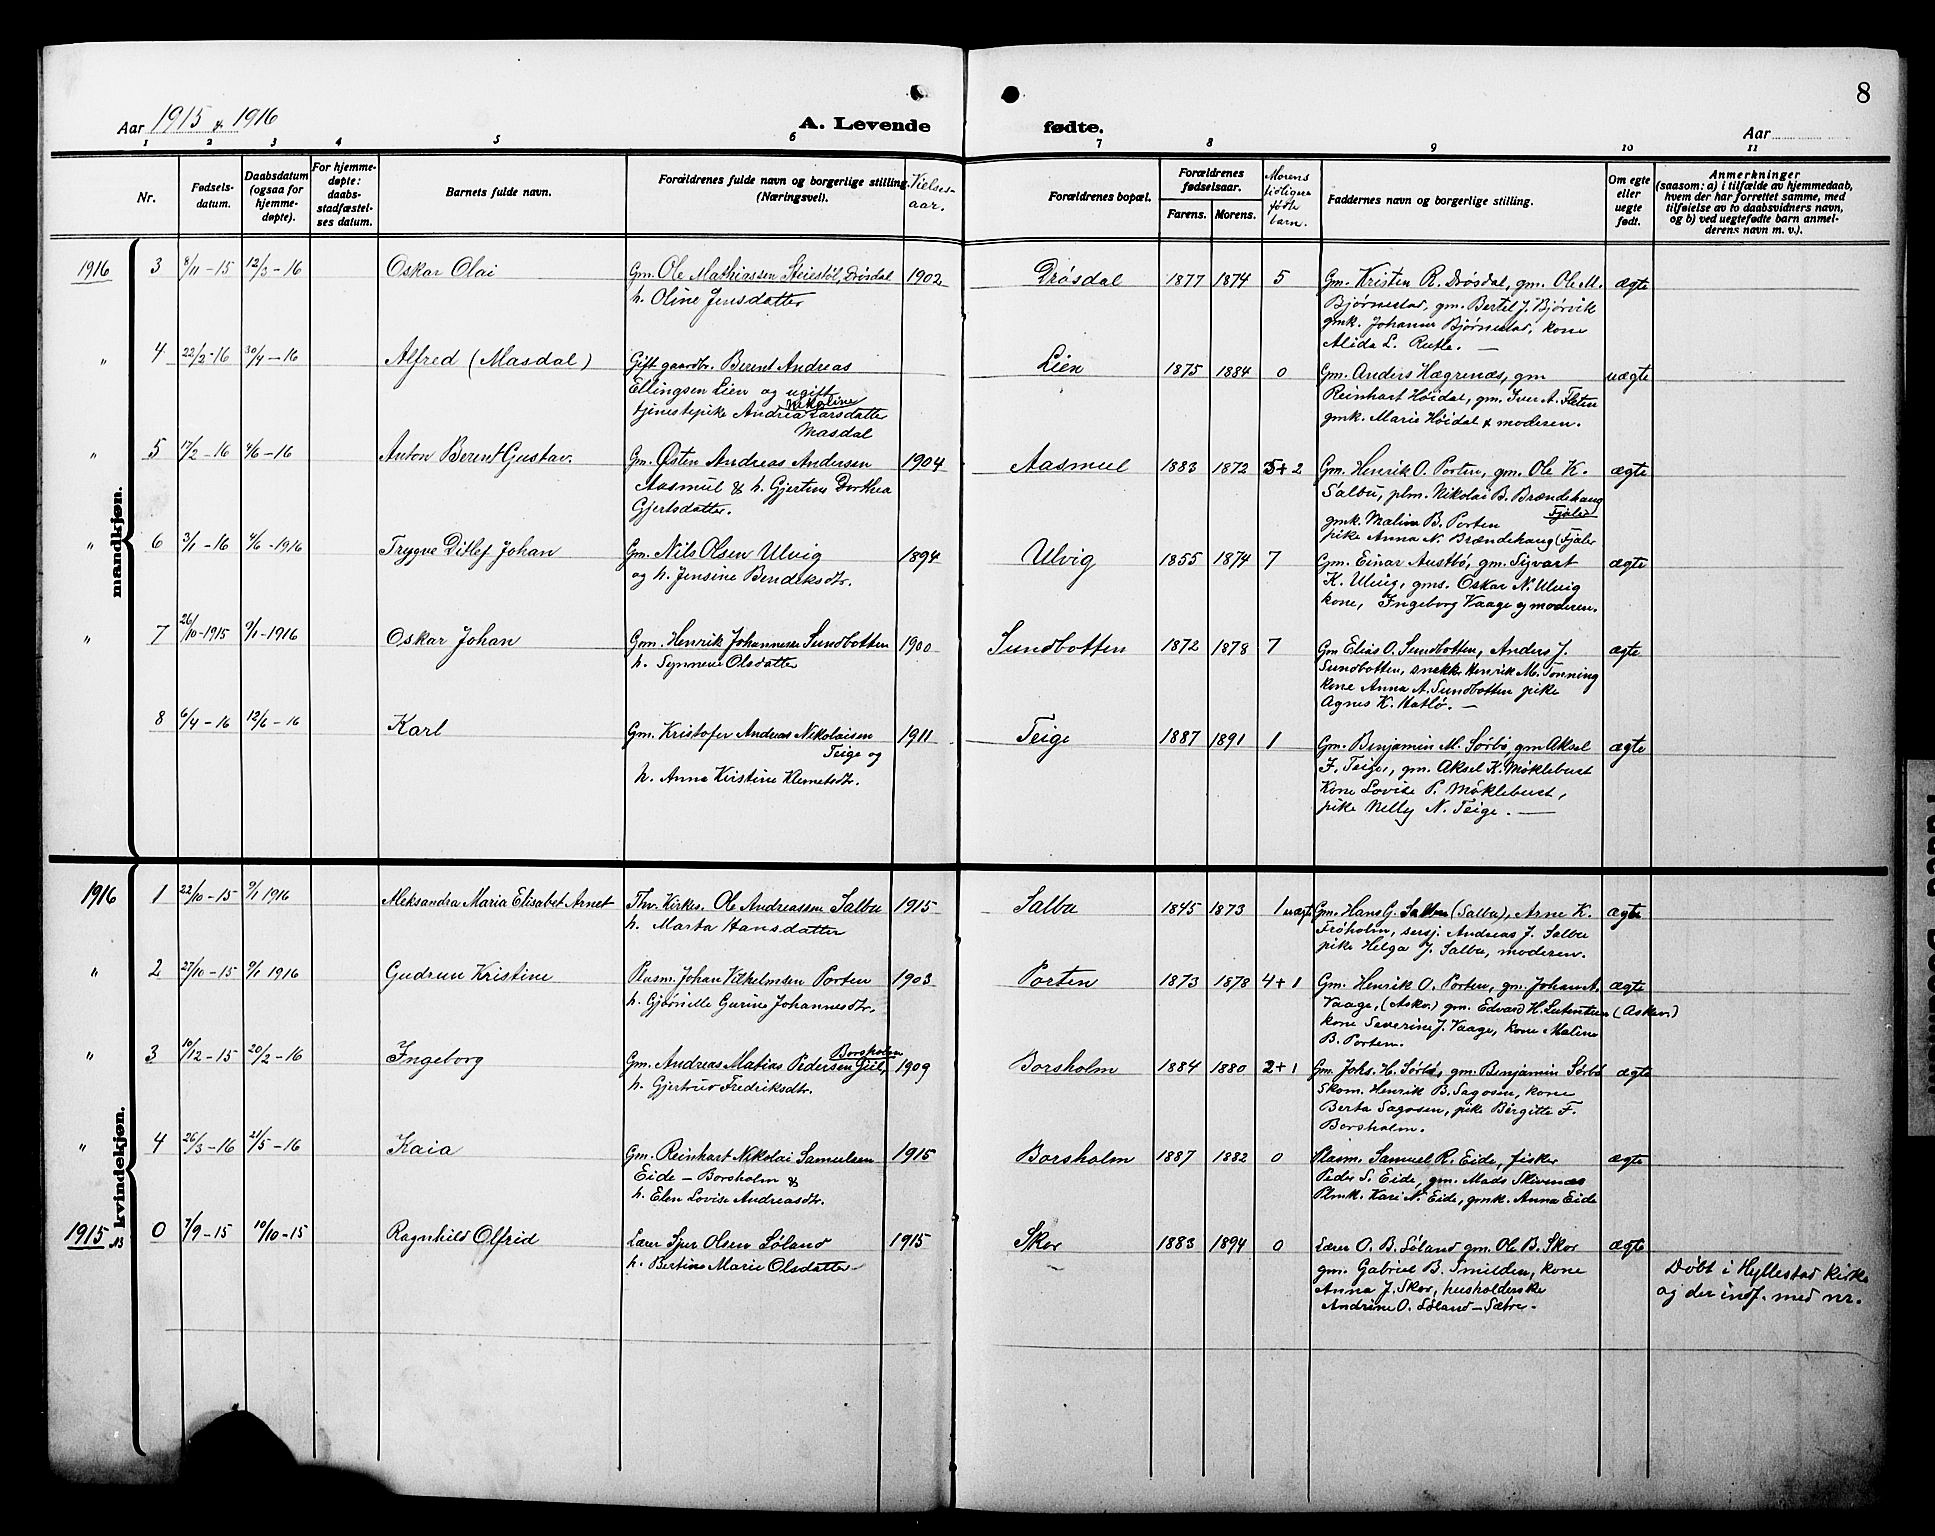 8
Aar 1915 & 1916
A. Levende fødte.
Aar
1 2 3 4 5 6 7 8 9 10 11
Nr.
Fødsels-
datum.
Daabsdatum
(ogsaa for
hjemme-
døpte).
For hjemme-
døpte:
daabs-
stadfæstel-
ses datum.
Barnets fulde navn.
Forældrenes fulde navn og borgerlige stilling.
(Næringsvei).
Vielses-
aar.
Forældrenes bopæl.
Forældrenes
fødselsaar.
Farens. Morens.
Morens
tidligere
fødte
barn.
Faddernes navn og borgerlige stilling.
Om egte
eller
uegte
født.
Anmerkninger
(saasom: a) i tilfælde av hjemmedaab,
hvem der har forrettet samme, med
tilføielse av to daabsvidners navn,
og b) ved uegtefødte barn anmel-
derens navn m. v.).
mandkjøn.
1916 3 8/11-15 12/3-16 Oskar Olai
Gm. Ole Mathiassen Steiestøl, Drøsdal
h. Oline Jensdatter
1902 Drøsdal 1877 1874 5
Gm. Kristen R. Drøsdal, gm. Ole M.
Bjørnestad, gm. Bertel J. Bjørvik
gmk. Johanne Bjørnestad, kone
Alida L. Rutle. —
ægte
" 4 22/2-16 30/4-16 Alfred (Masdal)
Gift gaardbr. Berent Andreas
Ellingsen Lien og ugift
tjenestepike Andrea Nikoline Larsdatter
Masdal
Lien 1875 1884 0
Gm. Anders Hægrenæs, gm
Reinhart Høidal, gm. Iver A. Fleten
gmk. Marie Høidal & moderen.
uægte
" 5 17/2-16 4/6-16 Anton Berent Gustav.
Gm. Østen Andreas Andersen
Aasmul & h. Gjertine Dorthea
Gjertsdatter.
1904 Aasmul 1883 1872 5+2
Gm. Henrik O. Porten, gm. Ole K.
Salbu, plm. Nikolai B. Brændehaug
Fjaler
gmk. Malene B. Porten
pike Anna N. Brændehaug (Fjaler
ægte
" 6 3/1-16 4/6-1916 Trygve Ditlef Johan
Gm. Nils Olsen Ulvig
og h. Jensine Bendiksdtr.
1894 Ulvig 1855 1874 7
Gm. Einar Austbø, gm. Sigvart
K. Ulvig, gms. Oskar N. Ulvig
kone, Ingeborg Vaage og moderen.
ægte
" 7 26/10-1915 9/1-1916 Oskar Johan
Gm. Henrik Johannesen Sundbotten
h. Synneve Olsdatter
1900 Sundbotten 1872 1878 7
Gm Elias O. Sundbotten, Anders J.
Sundbotten, snekker Henrik M. Tonning
kone Anna A. Sundbotten pike
Agnes K. Hatlø. —
ægte
8 6/4-16 12/6-16 Karl
Gm. Kristofer Andreas Nikolaisen
Teige og
h. Anna Kirstine Klemetsdtr.
1911 Teige 1887 1891 1
Gm. Benjamin M. Sørbø, gm Aksel
F. Teige, gm. Aksel K. Møklebust
Kone Lovise P. Møklebust,
pike Nelly N. Teige. —
ægte
kvindekjøn.
1916 1 22/10-15 9/1 1916 Aleksandra Maria Elisabet Arnet
Thv. Kirkes. Ole Andreassen Salbu
h. Marta Hansdatter
1915 Salbu 1845 1873 1 uægte
Gm. Hans G. Salbu (Salbu), Arne K.
Frøholm, sersj. Andreas J. Salbu
pike Helga J. Salbu, moderen.
ægte
" 2 27/10-15 9/1 1916 Gudrun Kristine
Plasm. Johan Vilhelmsen Porten
h. Gjørille Gurine Johannesdtr.
1903 Porten 1873 1878 4+1
Gm. Henrik O. Porten, gm. Johan A.
Vaage, (Askv.) gm. Edvard H. Lutentun (Askev.)
kone Severine J. Vaage, kone Malene
B. Porten.
ægte
" 3 10/12-15 20/2-16 Ingeborg
Gm. Andreas Matias Pedersen Giil, Borsholm
h. Gjertrud Fredriksdtr.
1909 Borsholm 1884 1880 2+1
Gm. Johs. H. Sørbø, gm. Benjamin Sørbø
Skom. Henrik B. Sagosen, kone
Berta Sagosen, pike Birgitte F.
Borsholm.
ægte
" 4 26/3-16 21/5-16 Kaia
Gm. Reinhart Nikolai Samuelsen
Eide - Borsholm &
h. Elen Lovise Andreasdtr.
1915 Borsholm 1887 1882 0
Plasm. Samuel R. Eide, fisker
Peder S. Eide, gm. Mads Skivenæs
Plmk. Kari N. Eide, gmk. Anna Eide
ægte
1915 NB 0 7/9-15 10/10-15 Ragnhild Olfrid
Lærer Sjur Olsen Søland
h. Bertine Marie Olsdatter
1915 Skor 1883 1894 0
Lærer O. B. Søland gm. Ole B. Skor
gm. Gabriel B. Smilden, kone
Anna J. Skor, husholderske
Andrine O. Søland - Sætre.
ægte
Døbt i Hyllestad kirke
og der indf. med nr.